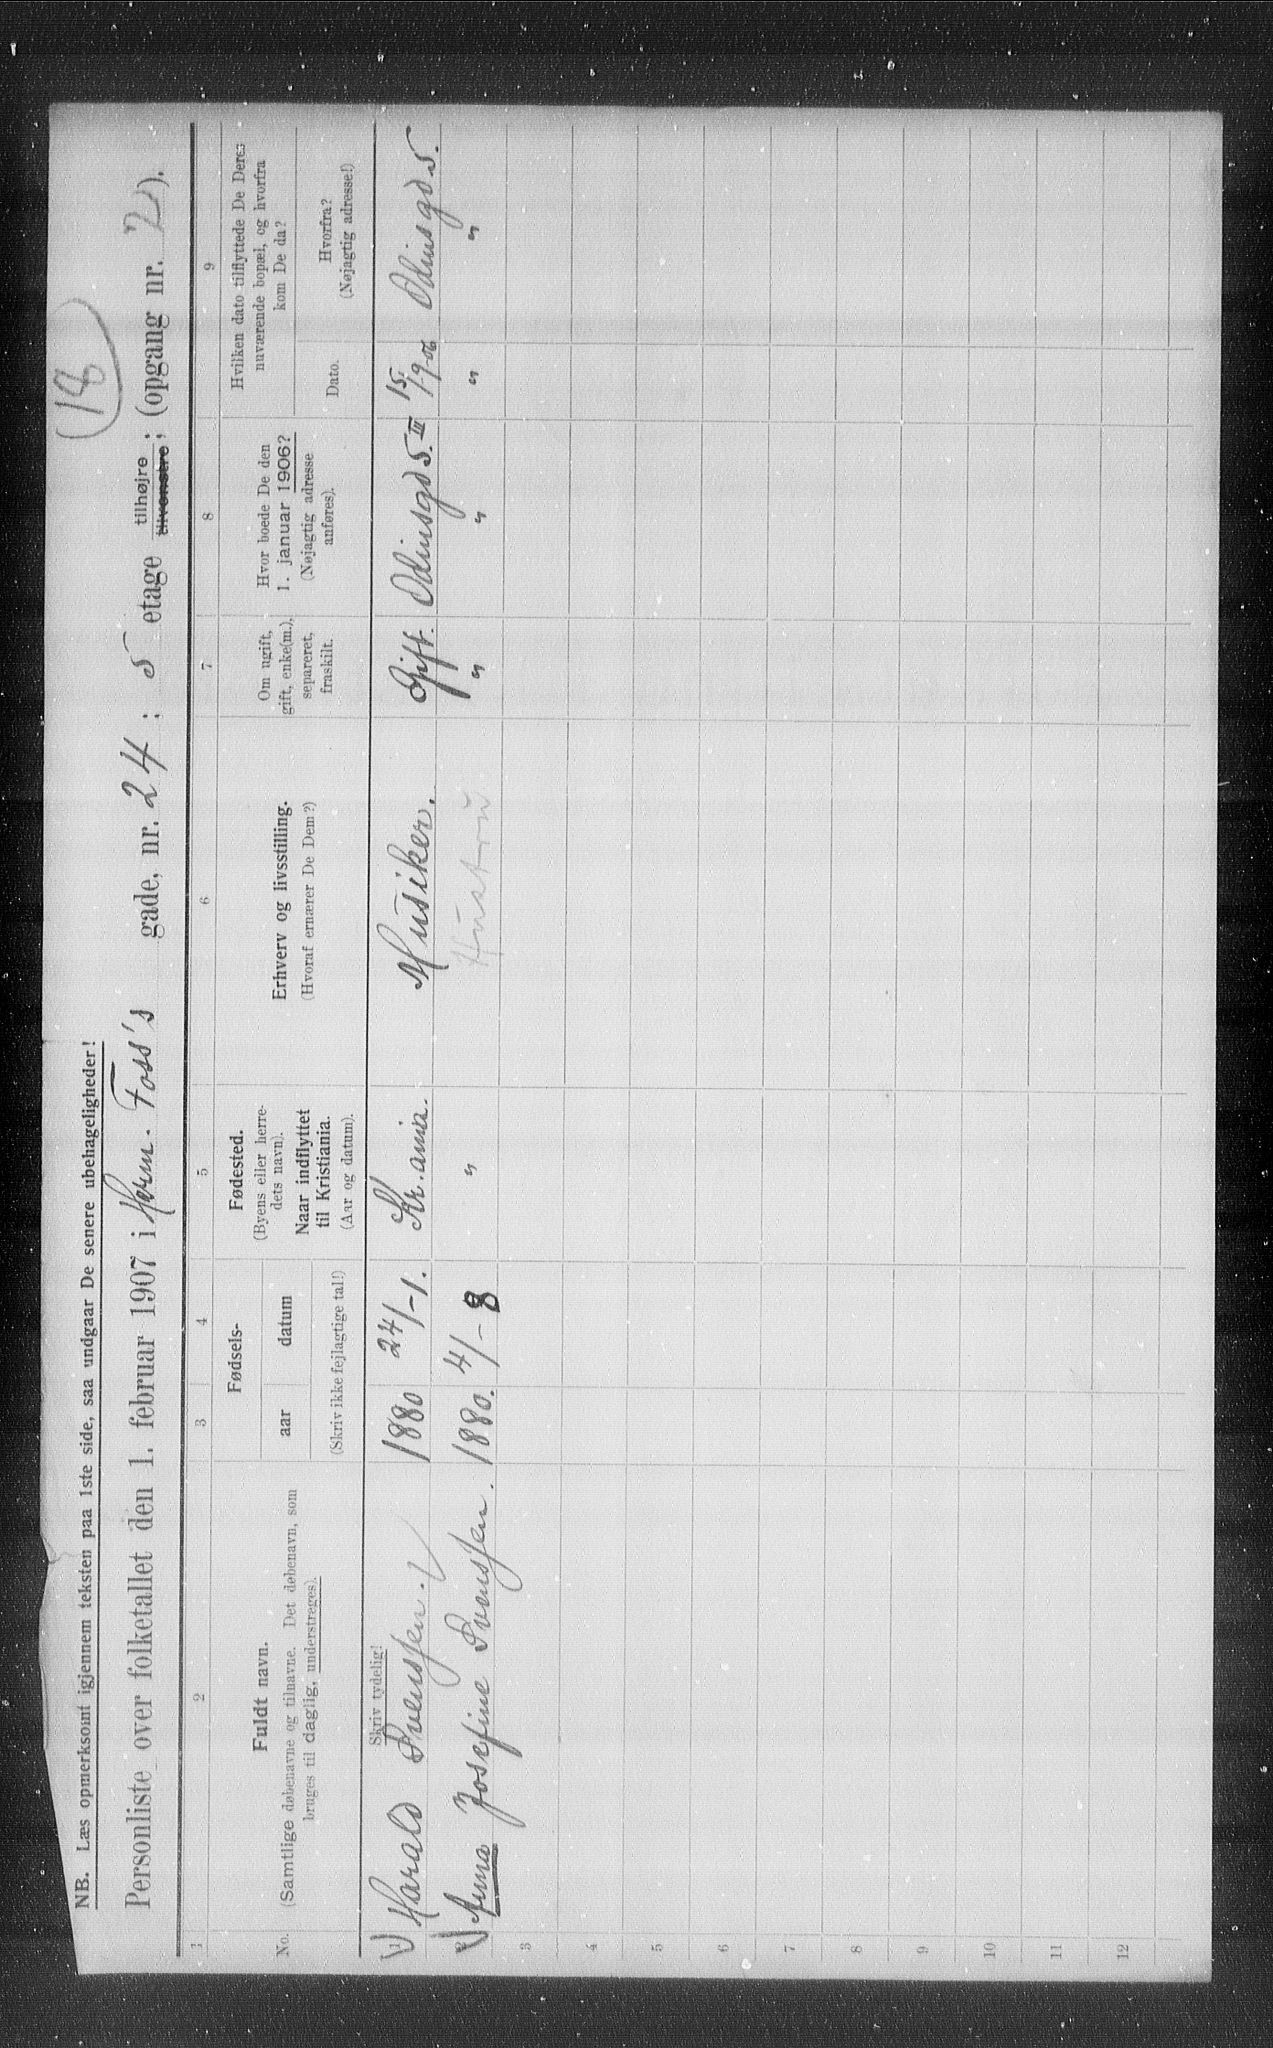 18
NB. Læs opmerksomt igjennem teksten paa 1ste side, saa undgaar De senere ubehageligheder!
Personliste over folketallet den 1. februar 1907 i Herm. Foss's gade, nr. 24 ; 5 etage tilhøjre tilvenstre ; (opgang nr. 2).
1 2 3 4 5 6 7 8 9
No.
Fuldt navn.
(Samtlige døbenavne og tilnavne. Det døbenavn, som
bruges til daglig, understreges).
Fødsels-
aar datum
(Skriv ikke fejlagtige tal!)
Fødested.
(Byens eller herre-
dets navn).
Naar indflyttet
til Kristiania.
(Aar og datum).
Erhverv og livsstilling.
(Hvoraf ernærer De Dem?)
Om ugift,
gift, enke(m.),
separeret,
fraskilt.
Hvor boede De den
1. januar 1906?
(Nøjagtig adresse
anføres).
Hvilken dato tilflyttede De Deres
nuværende bopæl, og hvorfra
kom De da?
Dato.
Hvorfra?
(Nøjagtig adresse!)
Skriv tydelig!
1 Harald Svenssen. 1880 24/-1. Kr.ania. Musiker. Gift. Odinsgd 5. III 15/9 06 Odinsgd 5.
2 Anna Josefine Svenssen. 1880. 4/-8 " Hustru " " " "
3
4
5
6
7
8
9
10
11
12